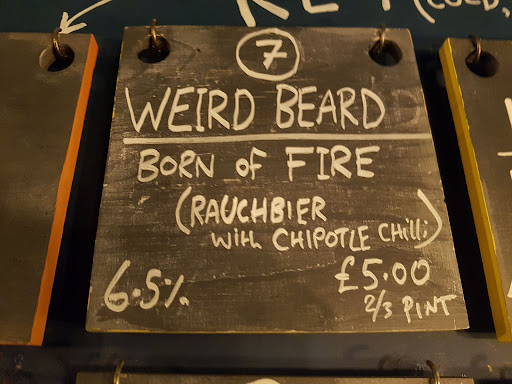 7
WEIRD BEARD
BORN of FIRE
(RAUCHBIER
with CHIPOTLE Chilli)
6.5% £5.00
2/3 PINT